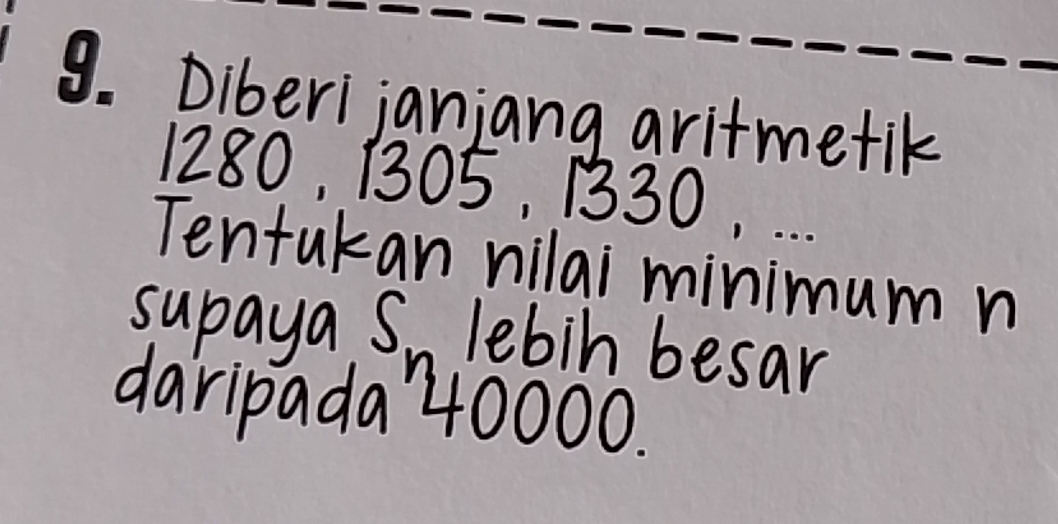 9. Diberi janjang aritmetik
1280, 1305, 1330, ...
Tentukan nilai minimum n
supaya Sₙ lebih besar
daripada 40000.